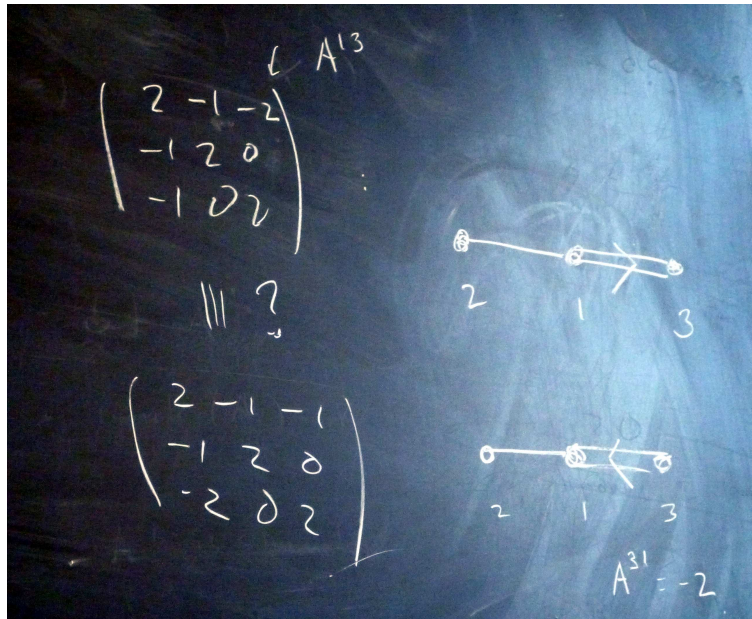 A¹³
2 -1 -2
-1 2 0
-1 0 2
:
2 1 3
||| ?
2 -1 -1
-1 2 0
-2 0 2
2 1 3
A³¹ = -2